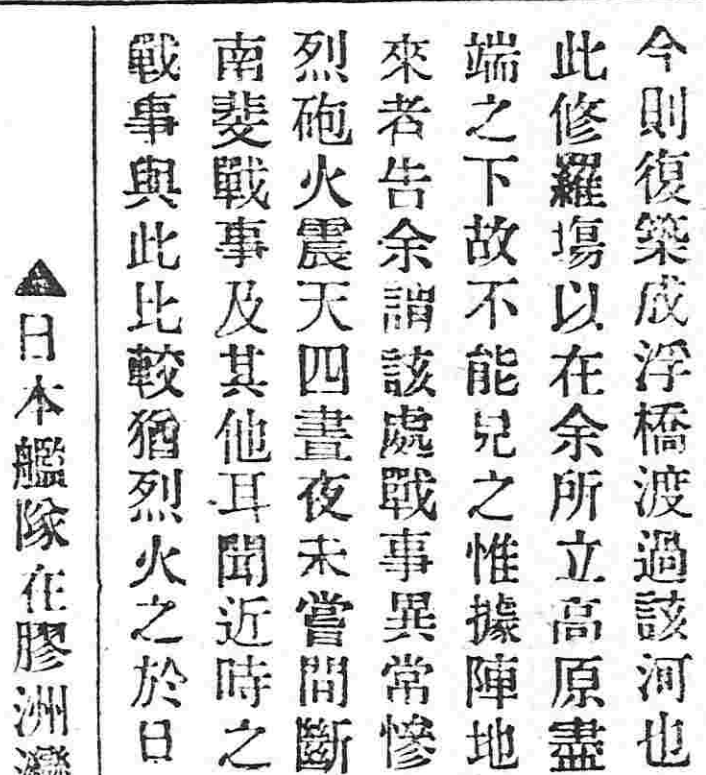 今則復築成浮橋渡過該河也
此修羅塲以在余所立高原盡
端之下故不能見之惟據陣地
來者告余謂該處戰事異常慘
烈砲火震天四晝夜未嘗間斷
南斐戰事及其他耳聞近時之
戰事與此比較猶烈火之於日
▲日本艦隊在膠洲灣